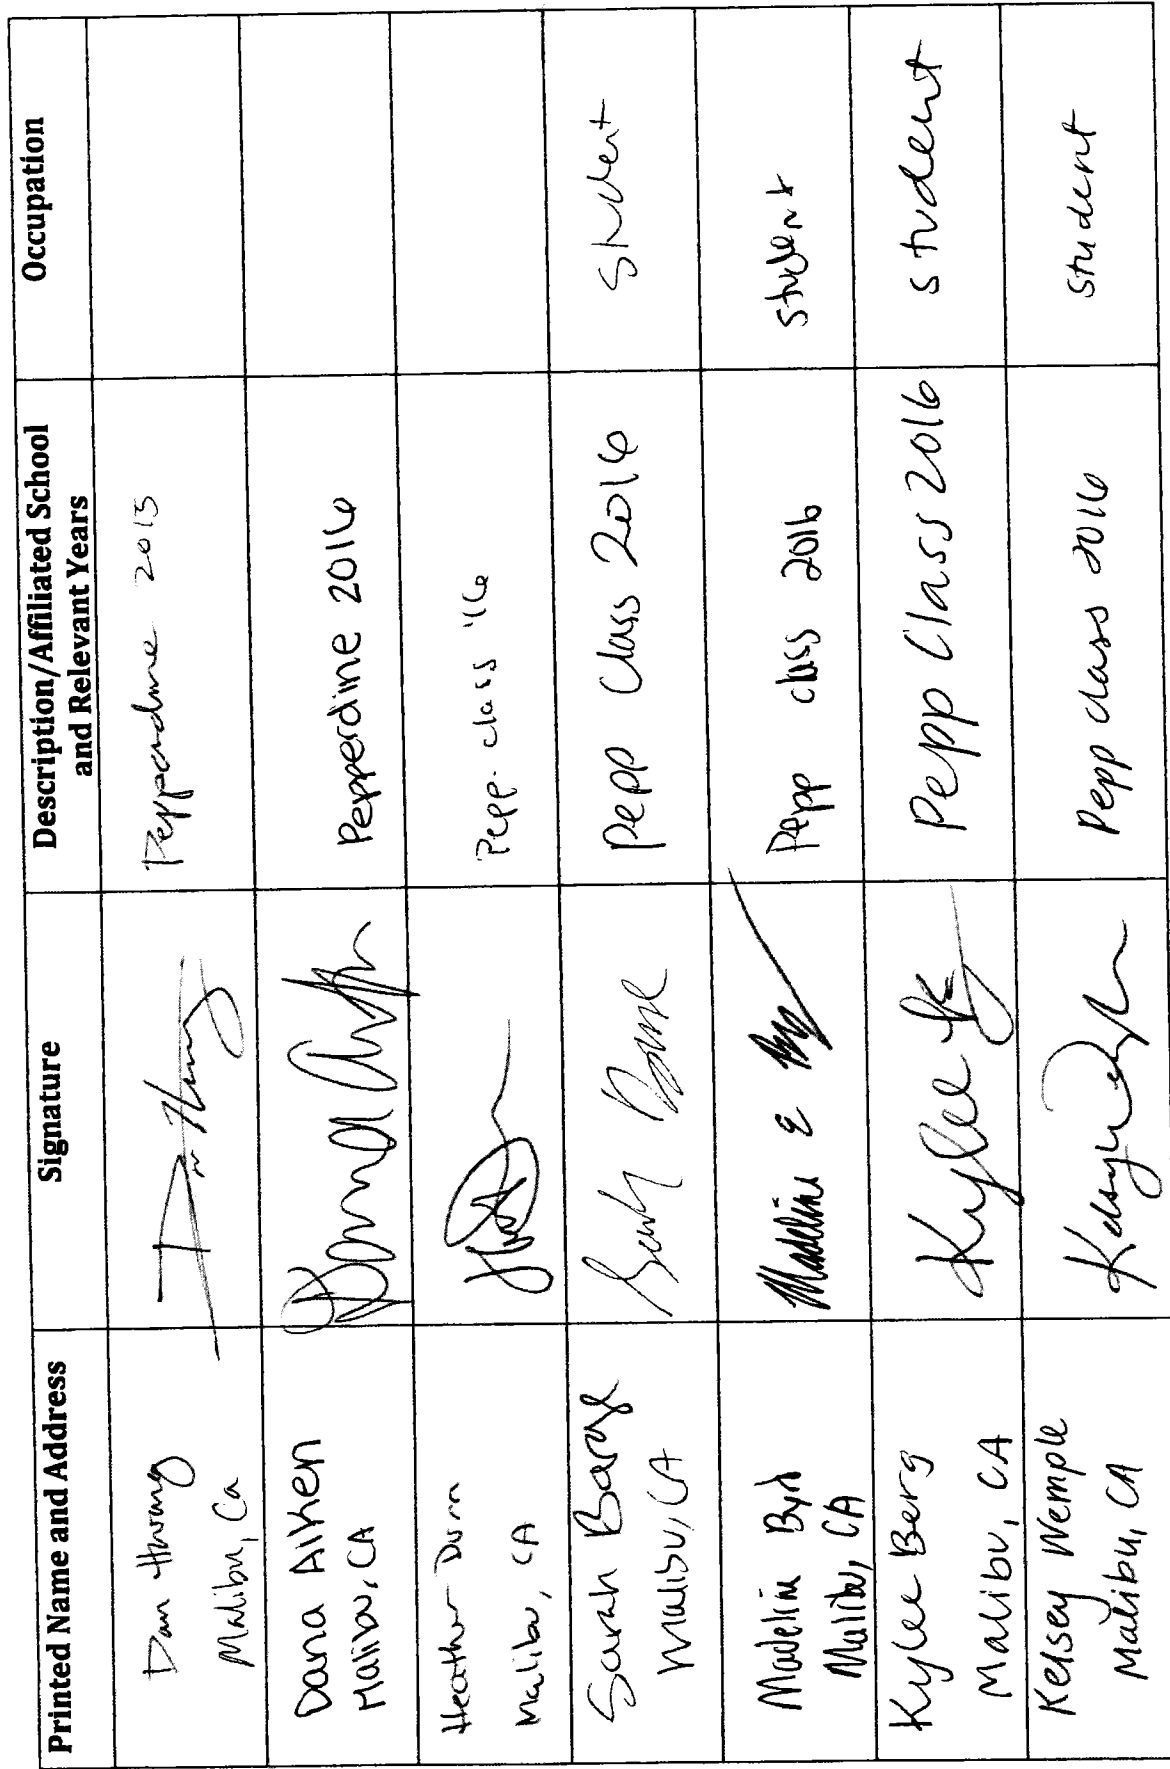 Printed Name and Address
Signature
Description/Affiliated School
and Relevant Years
Occupation
Dan Hwang
Malibu, Ca
Pepperdine 2015
Dana Aiken
Malibu, CA
Pepperdine 2016
Heather Dunn
Malibu, CA
Pepp. class '16
Sarah Barge
Malibu, CA
Pepp Class 2016
Student
Madeline Byrd
Malibu, CA
Madeline E
Pepp class 2016
student
Kylee Berg
Malibu, CA
Kylee
Pepp Class 2016
student
Kelsey Wemple
Malibu, CA
Pepp class 2016
student